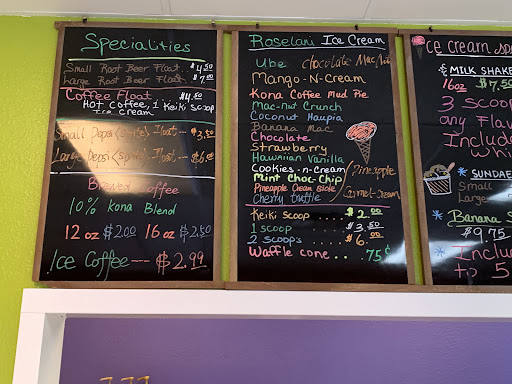 Specialities
Small Root Beer Float $4.50
Large Root Beer Float $7.00
Coffee Float $4.50
Hot Coffee, 1 Keiki Scoop
Ice Cream
Small Pepsi (Sprite) Float -- $3.50
Large Pepsi (Sprite) Float --- $6.00
Brewed Coffee
10% Kona Blend
12 oz $2.00 16 oz $2.50
Ice Coffee --- $2.99
Roselani Ice Cream
Ube Chocolate Mac Nut
Mango-N-Cream
Kona Coffee Mud Pie
Mac-nut Crunch
Coconut Haupia
Banana Mac
Chocolate
Strawberry
Hawaiian Vanilla
Cookies-n-Cream
Mint Choc-Chip
Pineapple Cream
Cherry
Pineapple
Caramel-Cream
Keiki Scoop ..... $2.00
1 Scoop ..... $3.50
2 Scoops ..... $6.00
Waffle cone ... 75¢
ce cream
MILK SHAKE
16oz $7.50
3 scoop
any Flav
Include
whi
SUNDAE
Small
Large
Banana S
$9.75
Includ
to 5